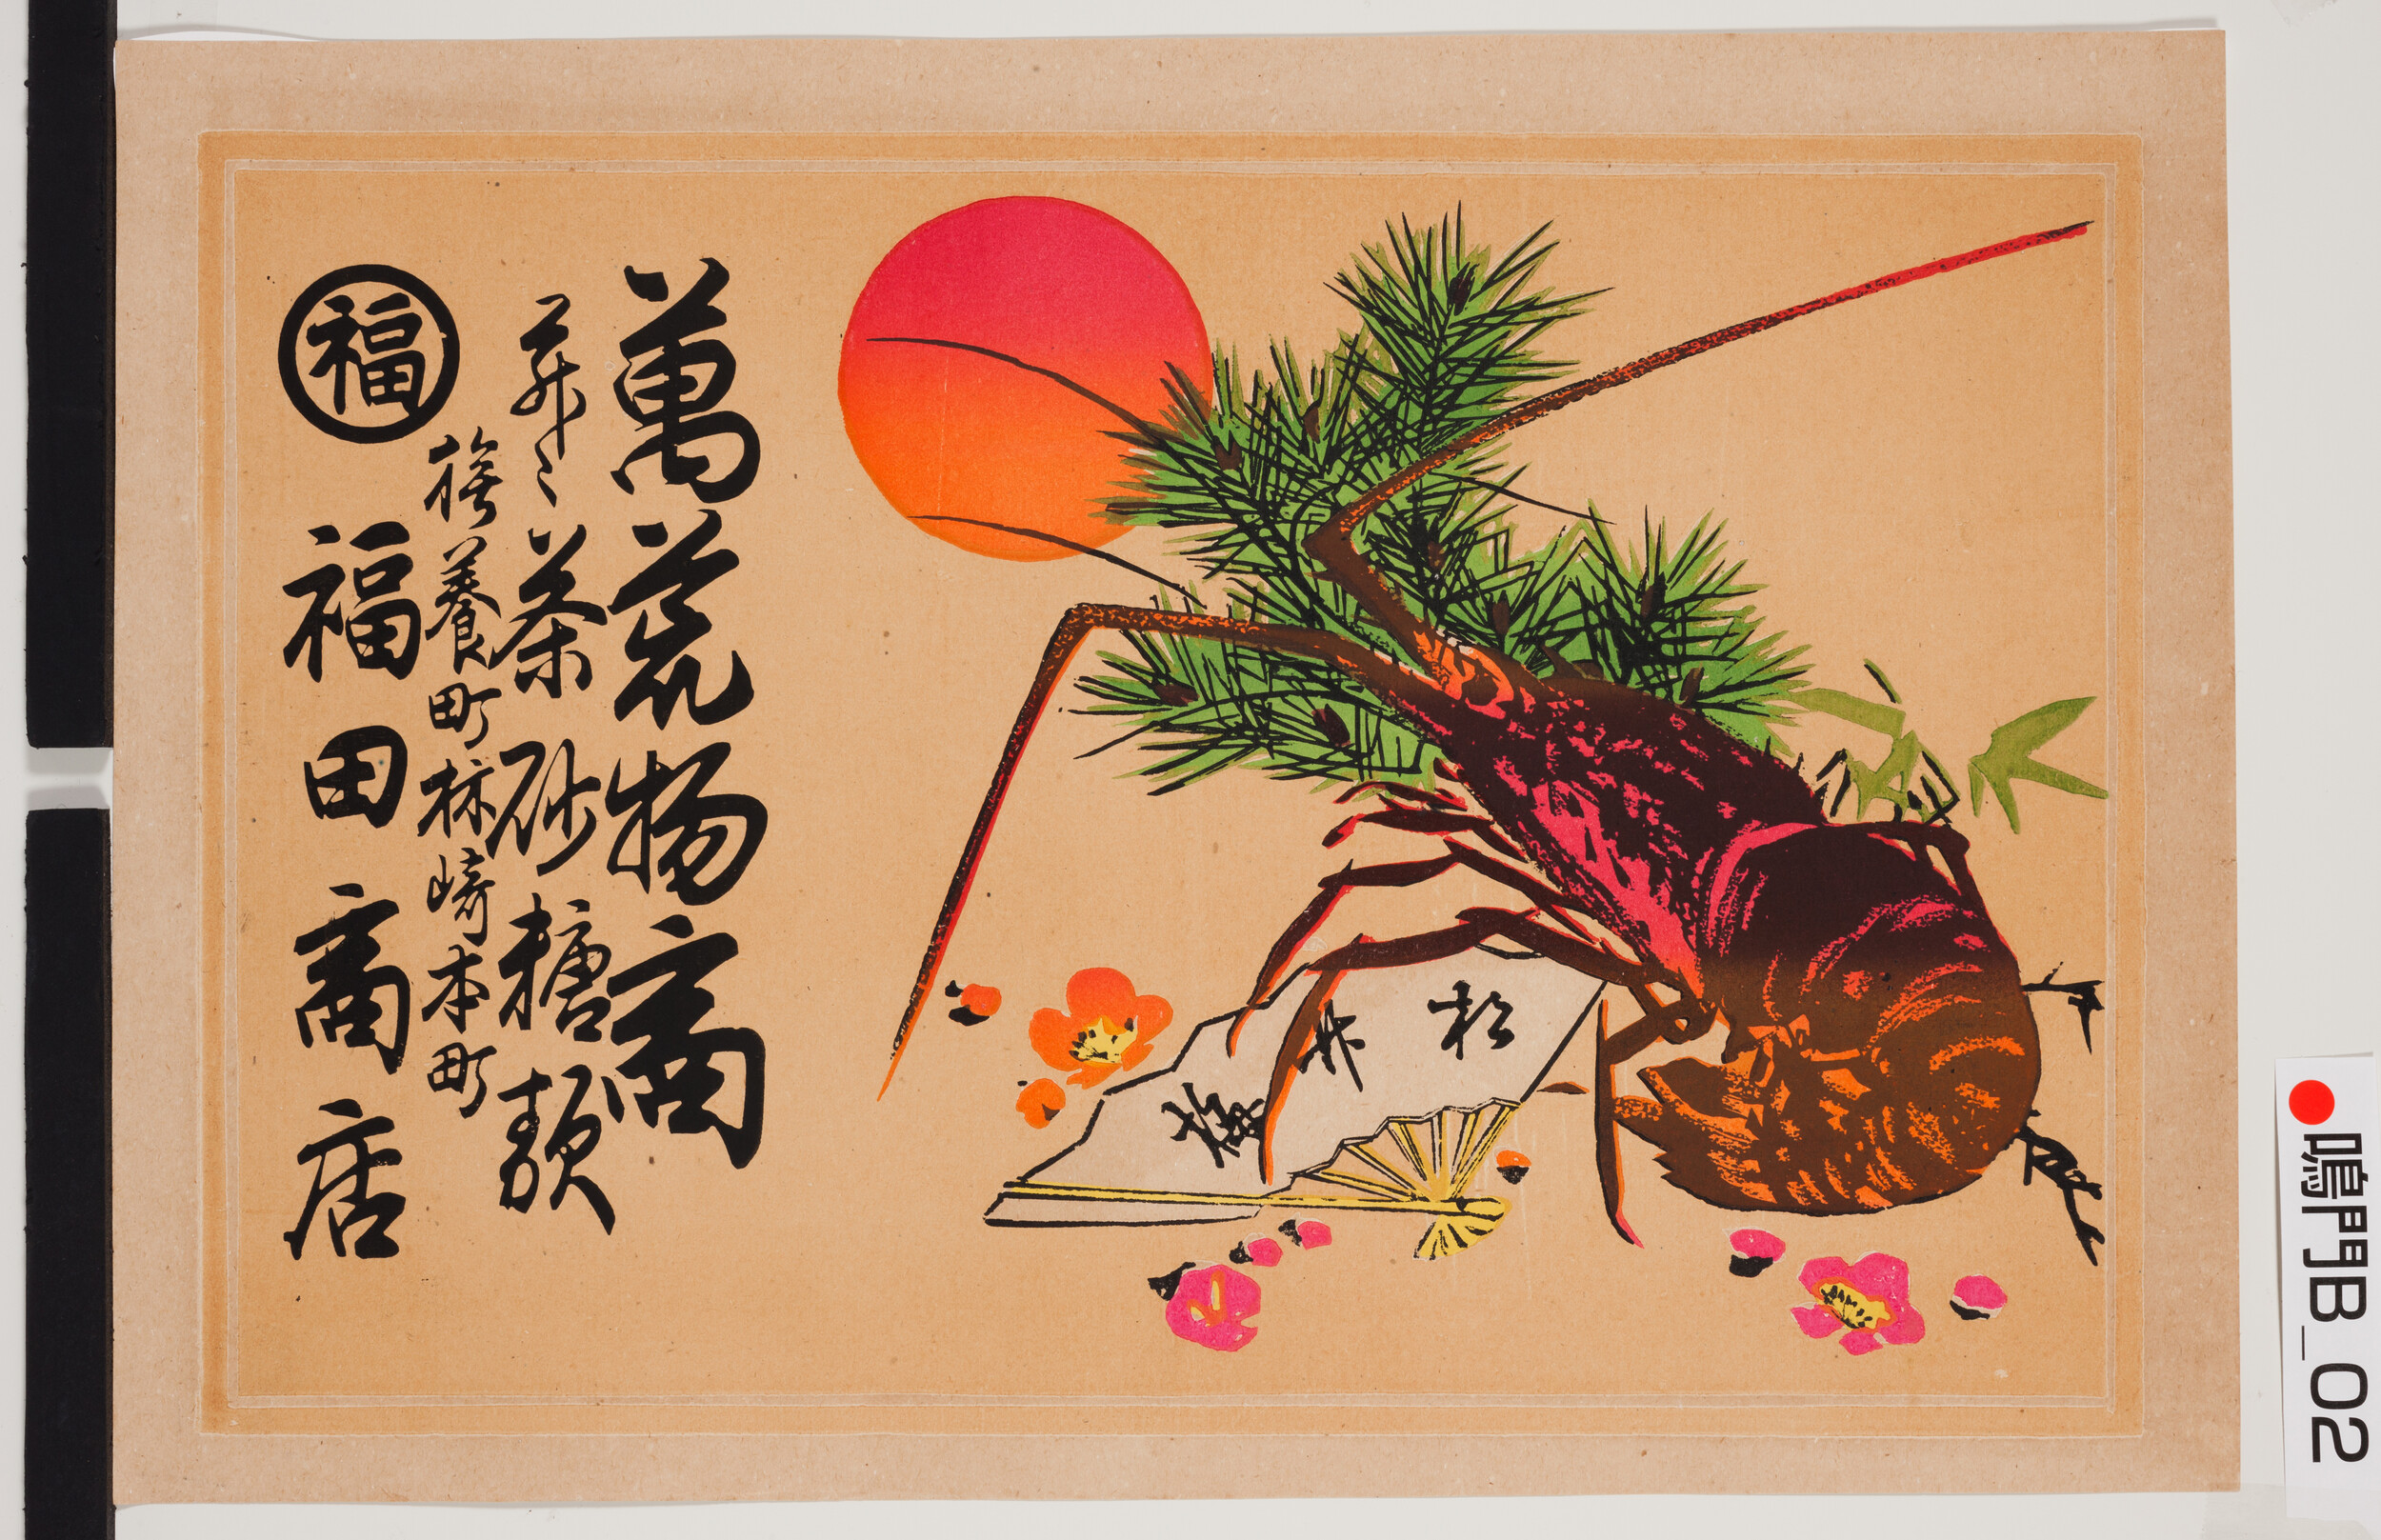 萬荒物商
茶砂糖類
撫養町林崎本町
福
福田商店
松竹梅
鳴門B_02